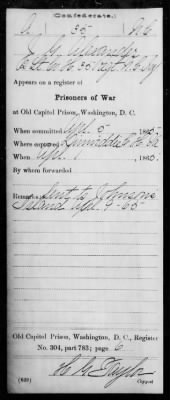 (Confederate.)
35 N.C.
Appears on a register of
Prisoners of War
at Old Capitol Prison, Washington, D. C.
When committed Apl. 5, 1865.
Where captured
When Apl. 1, 1865.
By whom forwarded
Remarks: Sent to Johnsons
Island Apl. 9-65
Old Capitol Prison, Washington, D. C., Register
No. 304, part 783; page 6
(639) Copyist